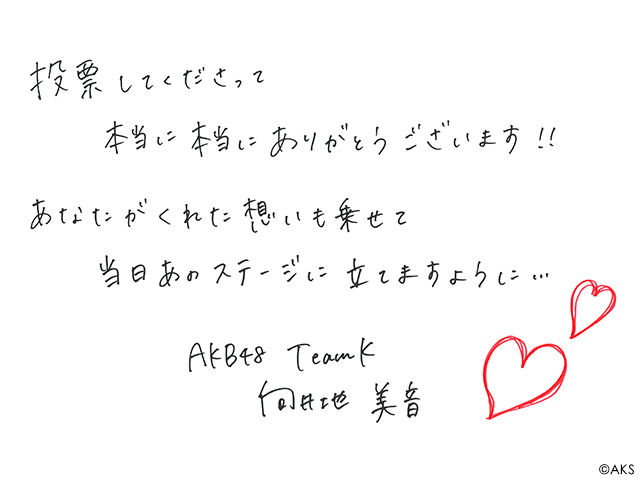 投票してくださって
本当に本当にありがとうございます!!
あなたがくれた想いも乗せて
当日あのステージに立てますように…
AKB48 TeamK
向井地 美音
©AKS